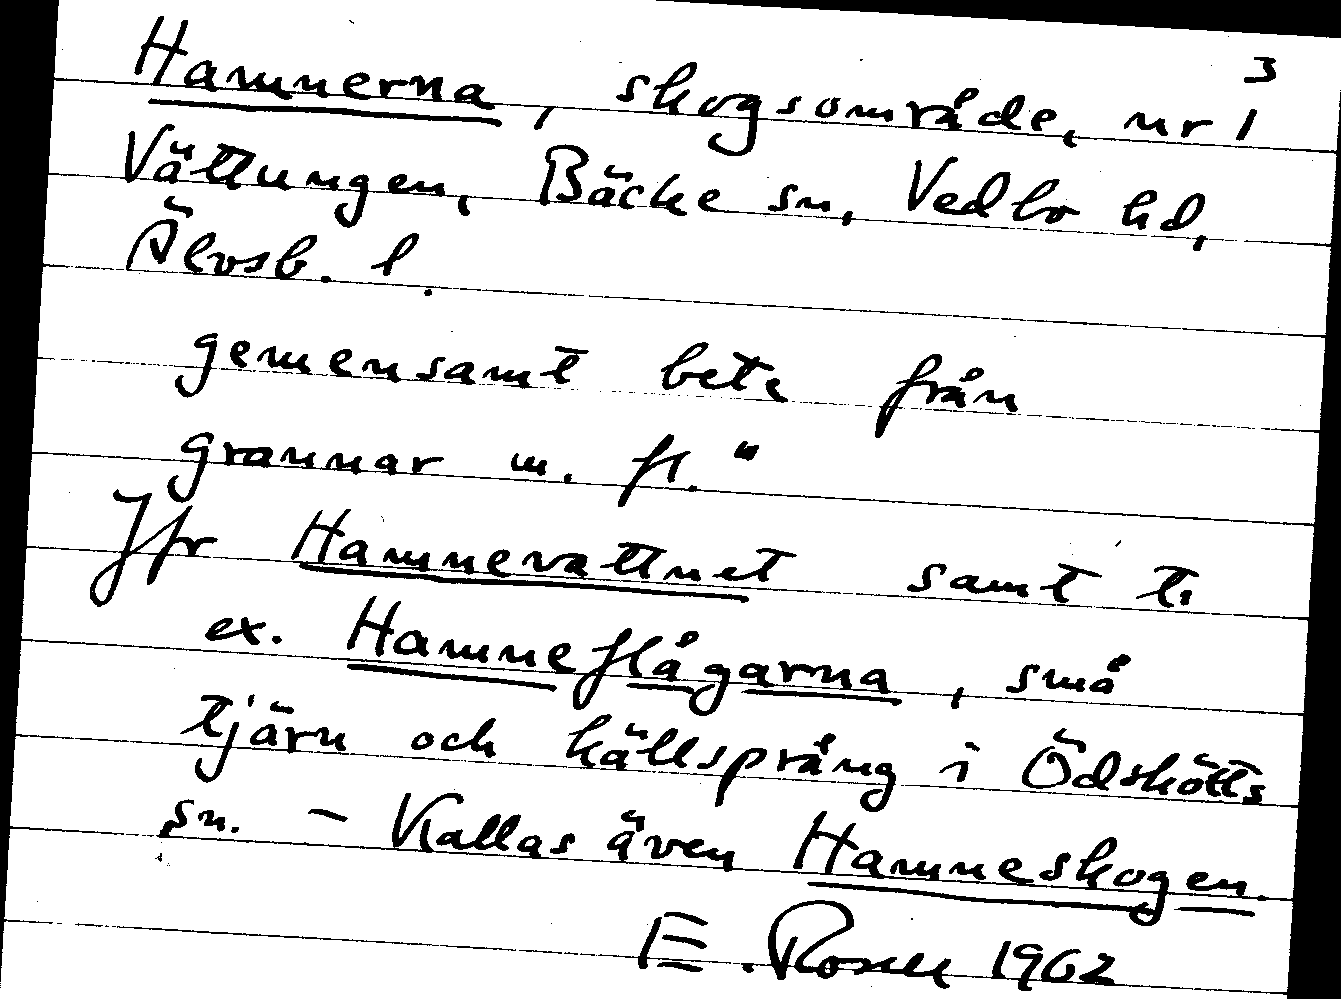 3
Hamnerna, skogsområde, nr 1
Vättungen, Bäcke sn, Vedbo hd,
Älvsb. l.
gemensamt bete från
grannar m. fl."
Jfr Hamnevattnet samt t.
ex. Hamneflågarna, små
tjärn och källspräng i Ödskölts
sn. - Kallas även Hamneskogen.
E. Rosell 1962